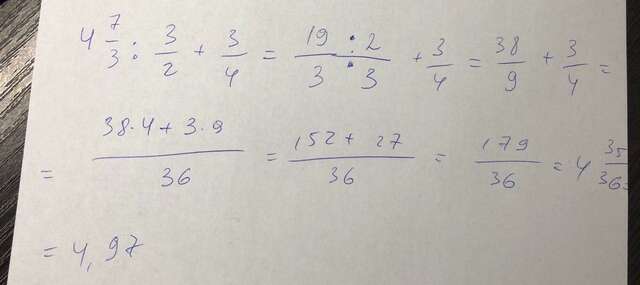 4 7/3 : 3/2 + 3/4 = (19 : 2)/(3 : 3) + 3/4 = 38/9 + 3/4 =
= (38·4 + 3·9)/36 = (152 + 27)/36 = 179/36 = 4 35/36 =
= 4,97